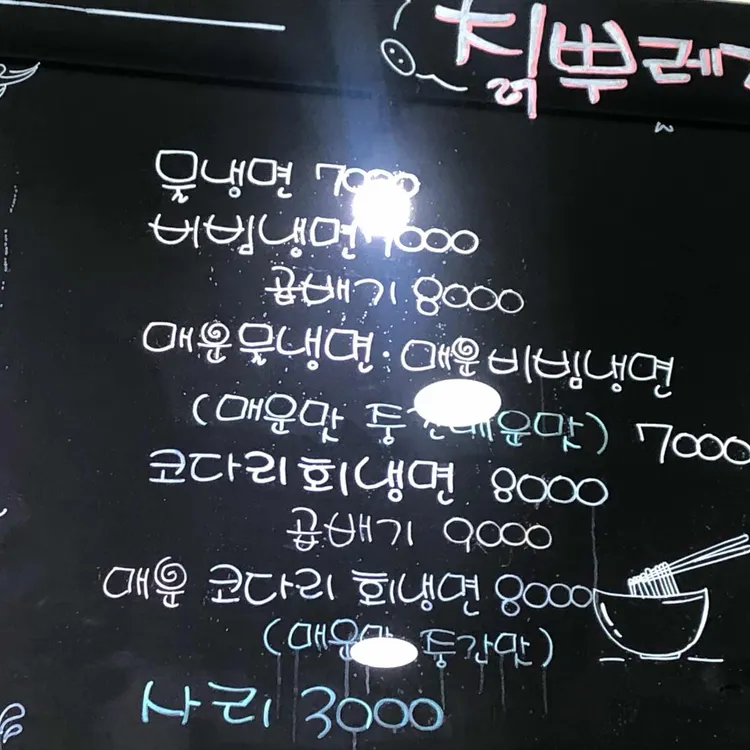 칡뿌레기
물냉면 7000
비빔냉면 7000
곱배기 8000
매운물냉면·매운비빔냉면
(매운맛 중간매운맛) 7000
코다리회냉면 8000
곱배기 9000
매운 코다리 회냉면 8000
(매운맛 중간맛)
사리 3000